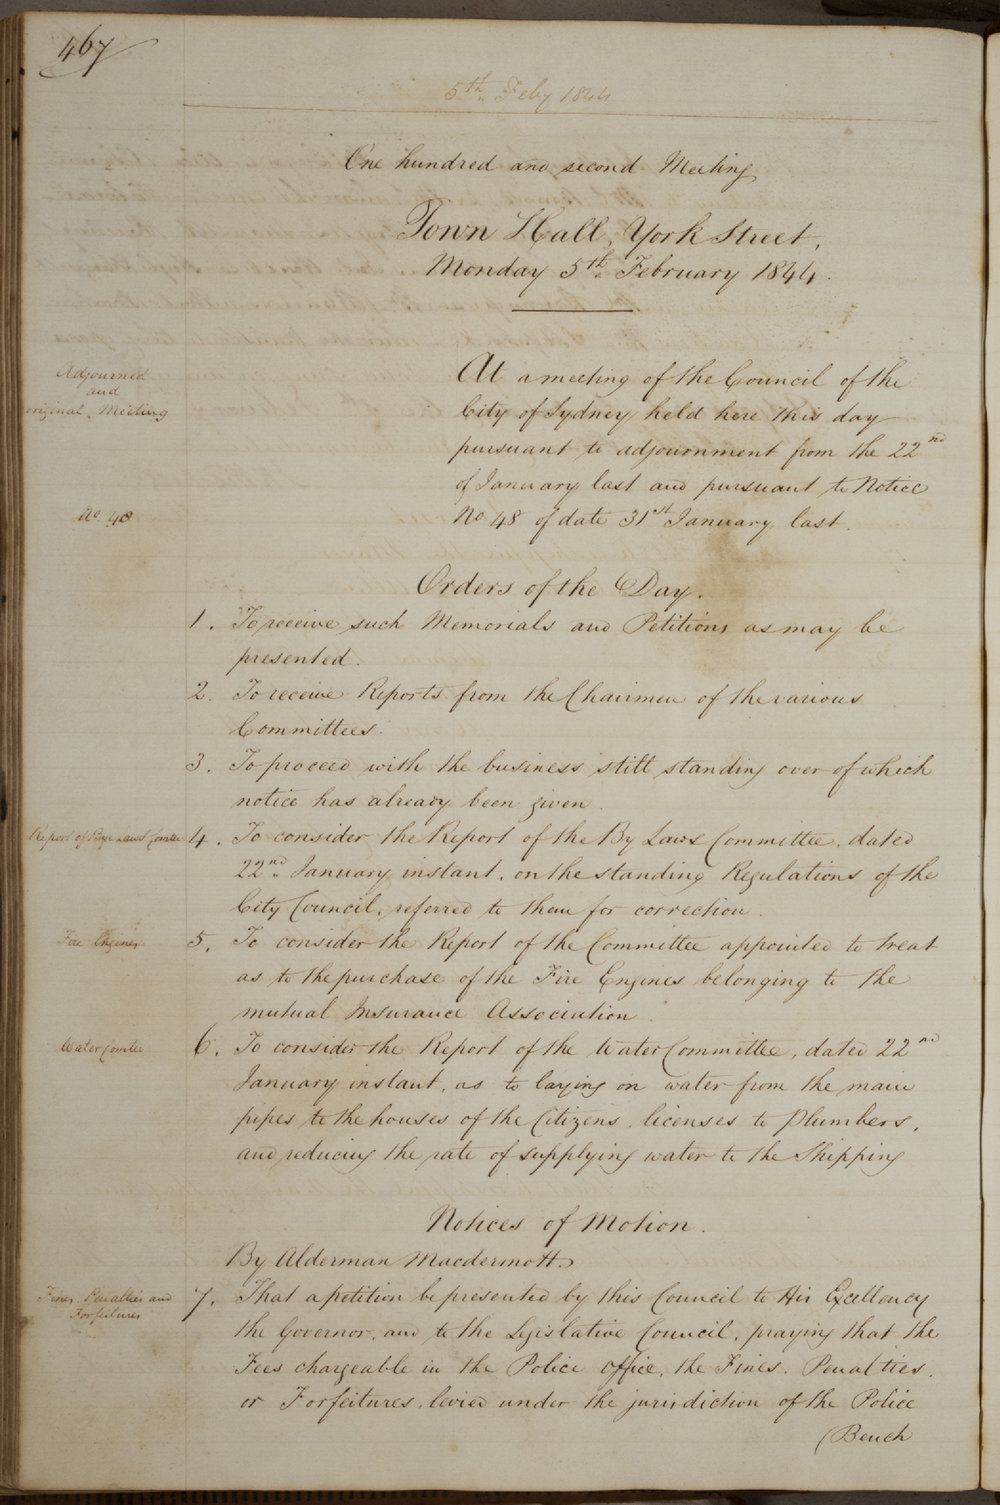 467
5th Feby 1844
One hundred and second Meeting
Town Hall, York Street,
Monday 5th February 1844.
Adjourned
and
original Meeting
At a meeting of the Council of the
City of Sydney held here this day
pursuant to adjournment from the 22nd
of January last and pursuant to Notice
No 48
No 48 of date 31st January last.
Orders of the Day.
1. To receive such Memorials and Petitions as may be
presented.
2. To receive Reports from the Chairmen of the various
Committees.
3. To proceed with the business still standing over of which
notice has already been given.
Report of Bye Laws Comtee
4. To consider the Report of the By Laws Committee, dated
22nd January instant, on the standing Regulations of the
City Council, referred to them for correction.
Fire Engines
5. To consider the Report of the Committee appointed to treat
as to the purchase of the Fire Engines belonging to the
mutual Insurance Association.
Water Comtee
6. To consider the Report of the Water Committee, dated 22nd
January instant, as to laying on water from the main
pipes to the houses of the Citizens, licenses to Plumbers,
and reducing the rate of supplying water to the Shipping
Notices of Motion.
By Alderman Macdermott.
Fines, Penalties and
Forfeitures
7. That a petition be presented by this Council to His Excellency
the Governor, and to the Legislative Council, praying that the
Fees chargeable in the Police office, the Fines, Penalties,
or Forfeitures, levied under the jurisdiction of the Police
(Bench